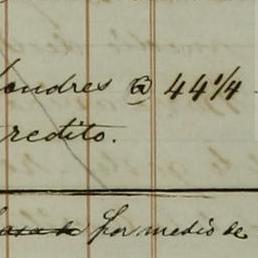 Londres @ 44 1/4
redito.
por medio de